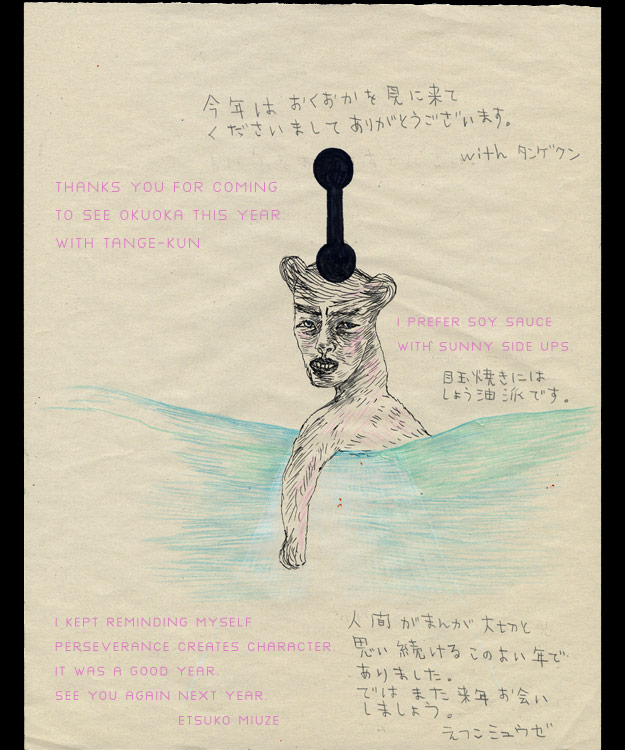 今年は おくおかを 見に来て
くださいまして ありがとうございます。
with タンゲクン
THANKS YOU FOR COMING
TO SEE OKUOKA THIS YEAR
WITH TANGE-KUN
I PREFER SOY SAUCE
WITH SUNNY SIDE UPS.
目玉焼きには
しょう油派です。
I KEPT REMINDING MYSELF
PERSEVERANCE CREATES CHARACTER.
IT WAS A GOOD YEAR.
SEE YOU AGAIN NEXT YEAR.
ETSUKO MIUZE
人間 がまんが 大切と
思い 続ける このよい年で
ありました。
では また 来年 お会い
しましょう。
えつこミュウゼ